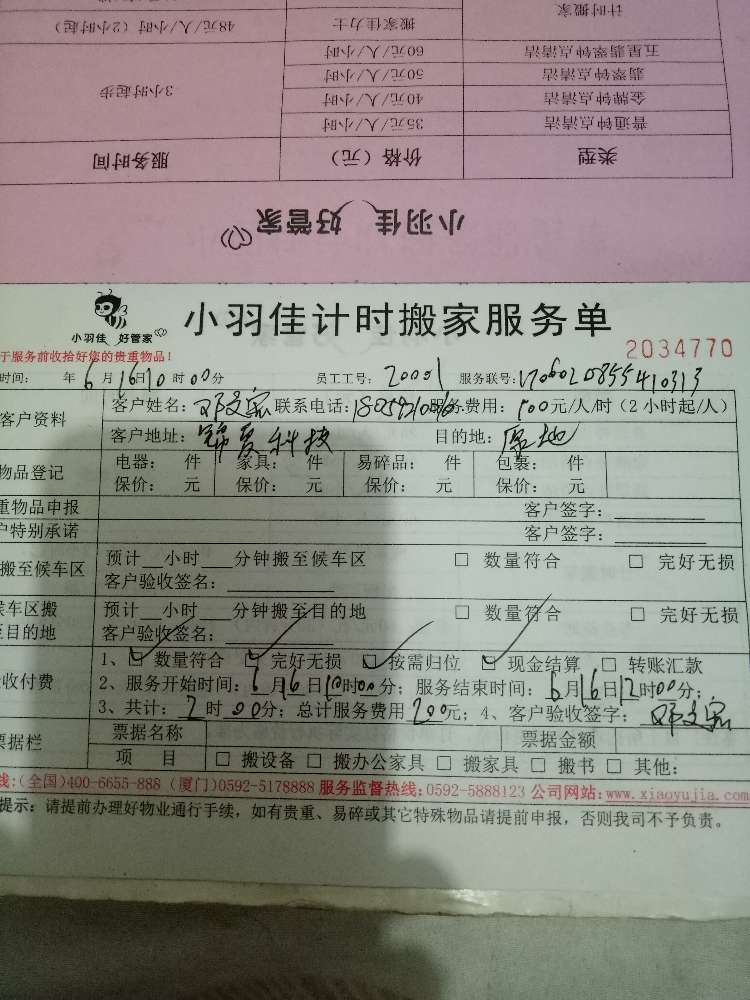 计时搬家 搬家佳力士 48元/人/小时（2小时起）
五星翡翠钟点清洁 60元/人/小时
翡翠钟点清洁 50元/人/小时 3小时起步
金牌钟点清洁 40元/人/小时
普通钟点清洁 35元/人/小时
类型 价格（元） 服务时间
小羽佳 好管家
小羽佳 好管家
小羽佳计时搬家服务单
2034770
于服务前收拾好您的贵重物品！
时间： 年6月16日10时00分 员工工号：20001 服务联号：170602085541031
客户资料 客户姓名： 联系电话： 服务费用：100元/人/时（2小时起/人）
客户地址： 科技 目的地：原地
物品登记 电器： 件 家具： 件 易碎品： 件 包裹： 件
保价： 元 保价： 元 保价： 元 保价： 元
重物品申报 客户签字：
户特别承诺 客户签字：
搬至候车区 预计__小时___分钟搬至候车区 □ 数量符合 □ 完好无损
客户验收签名：
候车区搬至目的地 预计__小时___分钟搬至目的地 □ 数量符合 □ 完好无损
客户验收签名：
收付费 1、☑ 数量符合 ☑ 完好无损 ☑ 按需归位 ☑ 现金结算 □ 转账汇款
2、服务开始时间：6月16日10时00分；服务结束时间：6月16日12时00分；
3、共计：2时00分；总计服务费用200元；4、客户验收签字：
票据栏 票据名称 票据金额
项 目 □ 搬设备 □ 搬办公家具 □ 搬家具 □ 搬书 □ 其他：
线:(全国)400-6655-888（厦门)0592-5178888 服务监督热线:0592-5888123 公司网站:www.xiaoyujia.com
提示：请提前办理好物业通行手续，如有贵重、易碎或其它特殊物品请提前申报，否则我司不予负责。